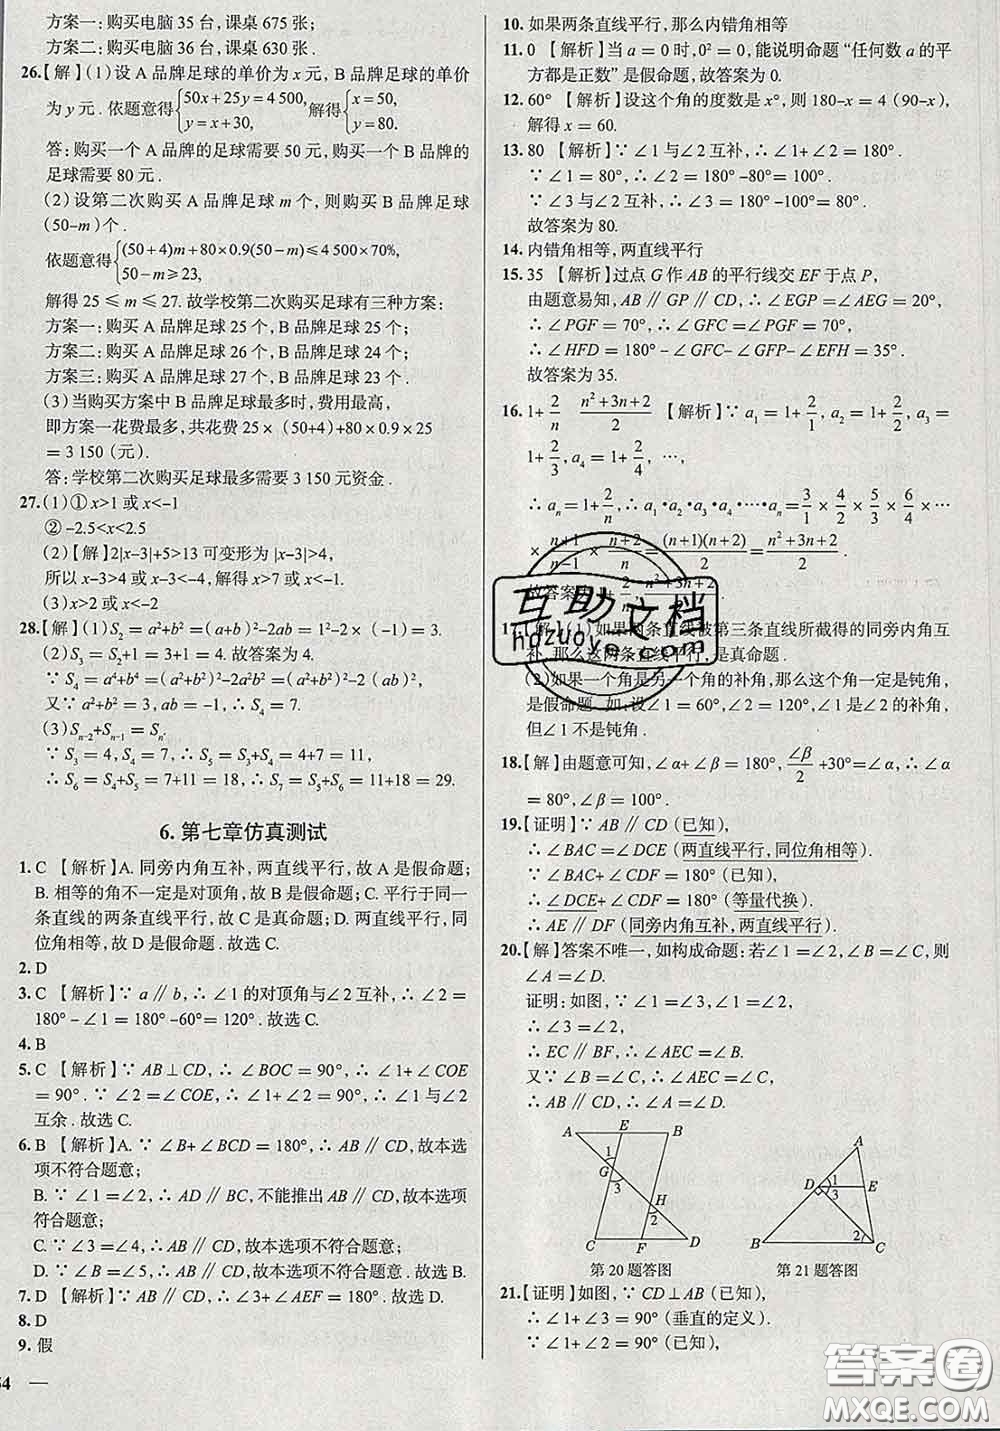 方案一:购买电脑 35 台,课桌 675 张;
方案二:购买电脑 36 台,课桌 630 张.
26.【解】(1)设 A 品牌足球的单价为 x 元, B 品牌足球的单价
为 y 元. 依题意得{50x+25y=4 500, y=x+30, 解得{x=50, y=80.
答:购买一个 A 品牌的足球需要 50 元,购买一个 B 品牌的
足球需要 80 元.
(2)设第二次购买 A 品牌足球 m 个,则购买 B 品牌足球
(50-m)个.
依题意得{(50+4)m+80×0.9(50-m)≤4 500×70%, 50-m≥23,
解得 25 ≤ m ≤ 27. 故学校第二次购买足球有三种方案:
方案一:购买 A 品牌足球 25 个,B 品牌足球 25 个;
方案二:购买 A 品牌足球 26 个,B 品牌足球 24 个;
方案三:购买 A 品牌足球 27 个,B 品牌足球 23 个.
(3)当购买方案中 B 品牌足球最多时,费用最高,
即方案一花费最多,共花费 25×(50+4)+80×0.9×25
=3 150 (元).
答:学校第二次购买足球最多需要 3 150 元资金.
27.(1)① x>1 或 x<-1
② -2.5<x<2.5
(2)【解】2|x-3|+5>13 可变形为 |x-3|>4,
所以 x-3>4 或 x-3<-4,解得 x>7 或 x<-1.
(3)x>2 或 x<-2
28.【解】(1)S₂=a²+b²=(a+b)²-2ab=1²-2×(-1)=3.
(2)S₃=S₂+S₁=3+1=4. 故答案为 4.
∵ S₄=a⁴+b⁴=(a²+b²)²-2a²b²=(a²+b²)²-2(ab)²,
又∵ a²+b²=3, ab=-1, ∴ S₄=7.
(3)Sₙ₋₂+Sₙ₋₁=Sₙ.
∵ S₃=4, S₄=7, ∴ S₅=S₃+S₄=4+7=11,
∴ S₆=S₄+S₅=7+11=18, ∴ S₇=S₅+S₆=11+18=29.
6. 第七章仿真测试
1. C 【解析】A. 同旁内角互补,两直线平行,故 A 是假命题;
B. 相等的角不一定是对顶角,故 B 是假命题; C. 平行于同一
条直线的两条直线平行,故 C 是真命题; D. 两直线平行,同
位角相等,故 D 是假命题. 故选 C.
2. D
3. C 【解析】∵ a∥b, ∴ ∠1 的对顶角与∠2 互补, ∴ ∠2 =
180°-∠1=180°-60°=120°. 故选 C.
4. B
5. C 【解析】∵ AB⊥CD, ∴ ∠BOC = 90°, ∴ ∠1+∠COE
=90°. ∵ ∠2=∠COE, ∴ ∠1+∠2=90°, ∴ ∠1 与∠2
互余. 故选 C.
6. B 【解析】A. ∵ ∠B+∠BCD=180°, ∴ AB∥CD,故本选
项不符合题意;
B. ∵ ∠1=∠2, ∴ AD∥BC,不能推出 AB∥CD,故本选项
符合题意;
C. ∵ ∠3=∠4, ∴ AB∥CD,故本选项不符合题意;
D. ∵ ∠B=∠5, ∴ AB∥CD,故本选项不符合题意.
7. D 【解析】∵ AB∥CD, ∴ ∠3+∠AEF=180°. 故选 D.
8. D
9. 假
10. 如果两条直线平行,那么内错角相等
11. 0 【解析】当 a=0 时,0²=0,能说明命题“任何数 a 的平
方都是正数”是假命题,故答案为 0.
12. 60° 【解析】设这个角的度数是 x°,则 180-x=4(90-x),
解得 x=60.
13. 80 【解析】∵ ∠1 与∠2 互补, ∴ ∠1+∠2=180°.
∵ ∠1=80°, ∴ ∠2=180°-80°=100°.
∵ ∠3 与∠2 互补, ∴ ∠3=180°-∠2=80°.
故答案为 80.
14. 内错角相等,两直线平行
15. 35 【解析】过点 G 作 AB 的平行线交 EF 于点 P,
由题意易知, AB∥GP∥CD, ∴ ∠EGP=∠AEG=20°,
∴ ∠PGF=70°, ∴ ∠GFC=∠PGF=70°,
∴ ∠HFD=180°-∠GFC-∠GFP-∠EFH=35°.
故答案为 35.
16. 1+2/n (n²+3n+2)/2 【解析】∵ a₁=1+2/1, a₂=1+2/2, a₃=
1+2/3, a₄=1+2/4, …,
∴ aₙ=1+2/n, ∴ a₁·a₂·a₃·a₄·…·aₙ=3/1×4/2×5/3×6/4×…
×(n+1)/(n-1)×(n+2)/n=(n+1)(n+2)/2=(n²+3n+2)/2.
故答案为 1+2/n (n²+3n+2)/2
17.【解】(1)如果两条直线被第三条直线所截得的同旁内角互
补,那么这两条直线平行,是真命题.
(2)如果一个角是另一个角的补角,那么这个角一定是钝角,
是假命题. 如:设∠1=60°,∠2=120°,∠1 是∠2 的补角,
但∠1 不是钝角.
18.【解】由题意可知,∠α+∠β=180°, ∠β/2+30°=∠α, ∴ ∠α
=80°,∠β=100°.
19.【证明】∵ AB∥CD (已知),
∴ ∠BAC=∠DCE (两直线平行,同位角相等).
∵ ∠BAC+∠CDF=180°(已知),
∴ ∠DCE+∠CDF=180°(等量代换).
∴ AE∥DF (同旁内角互补,两直线平行).
20.【解】答案不唯一,如构成命题:若∠1=∠2,∠B=∠C,则
∠A=∠D.
证明:如图, ∵ ∠1=∠3,∠1=∠2,
∴ ∠3=∠2,
∴ EC∥BF, ∴ ∠AEC=∠B.
又∵ ∠B=∠C, ∴ ∠AEC=∠C,
∴ AB∥CD, ∴ ∠A=∠D.
A E B 1 G 3 H 2 C F D
A D 1 E 3 B 2 C
第 20 题答图
第 21 题答图
21.【证明】如图, ∵ CD⊥AB (已知),
∴ ∠1+∠3=90°(垂直的定义).
∵ ∠1+∠2=90°(已知),
互助文档
hdzuoye.com
答案圈
MXQE.COM